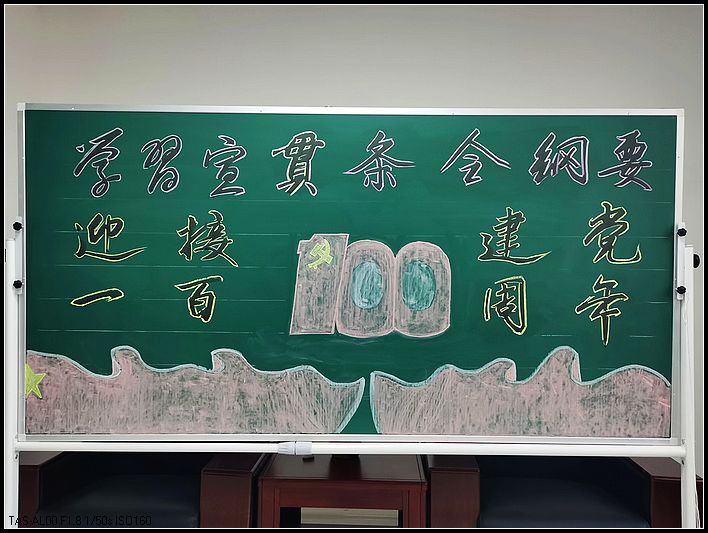 学習宣貫条令纲要
迎接 100 建党
一百 周年
TAS-AL00 F1.8 1/50s ISO160